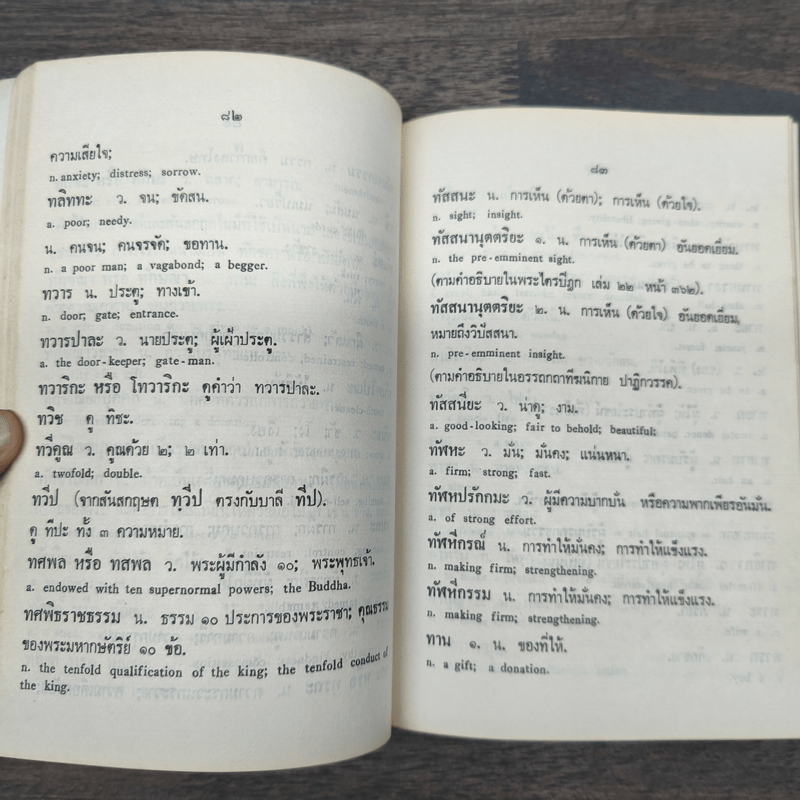 ๘๒
ความเสียใจ;
n. anxiety; distress; sorrow.
ทลิททะ ว. จน; ขัดสน.
a. poor; needy.
น. คนจน; คนจรจัด; ขอทาน.
n. a poor man; a vagabond; a begger.
ทวาร น. ประตู; ทางเข้า.
n. door; gate; entrance.
ทวารปาละ ว. นายประตู; ผู้เฝ้าประตู.
a. the door-keeper; gate-man.
ทวาริกะ หรือ โทวาริกะ ดูคำว่า ทวารปาละ.
ทวิช ดู ทิชะ.
ทวีคูณ ว. คูณด้วย ๒; ๒ เท่า.
a. twofold; double.
ทวีป (จากสันสกฤต ทฺวีป ตรงกับบาลี ทีป).
ดู ทีปะ ทั้ง ๓ ความหมาย.
ทศพล หรือ ทสพล ว. พระผู้มีกำลัง ๑๐; พระพุทธเจ้า.
a. endowed with ten supernormal powers; the Buddha.
ทศพิธราชธรรม น. ธรรม ๑๐ ประการของพระราชา; คุณธรรม
ของพระมหากษัตริย์ ๑๐ ข้อ.
n. the tenfold qualification of the king; the tenfold conduct of
the king.
๘๓
ทัสสนะ น. การเห็น (ด้วยตา); การเห็น (ด้วยใจ).
n. sight; insight.
ทัสสนานุตตริยะ ๑. น. การเห็น (ด้วยตา) อันยอดเยี่ยม.
n. the pre-emminent sight.
(ตามคำอธิบายในพระไตรปิฎก เล่ม ๒๒ หน้า ๓๖๒).
ทัสสนานุตตริยะ ๒. น. การเห็น (ด้วยใจ) อันยอดเยี่ยม,
หมายถึงวิปัสสนา.
n. pre-emminent insight.
(ตามคำอธิบายในอรรถกถาทีฆนิกาย ปาฏิกวรรค).
ทัสสนียะ ว. น่าดู; งาม.
a. good-looking; fair to behold; beautiful;
ทัฬหะ ว. มั่น; มั่นคง; แน่นหนา.
a. firm; strong; fast.
ทัฬหปรักกมะ ว. ผู้มีความบากบั่น หรือความพากเพียรอันมั่น.
a. of strong effort.
ทัฬหีกรณ์ น. การทำให้มั่นคง; การทำให้แข็งแรง.
n. making firm; strengthening.
ทัฬหีกรรม น. การทำให้มั่นคง; การทำให้แข็งแรง.
n. making firm; strengthening.
ทาน ๑. น. ของที่ให้.
n. a gift; a donation.